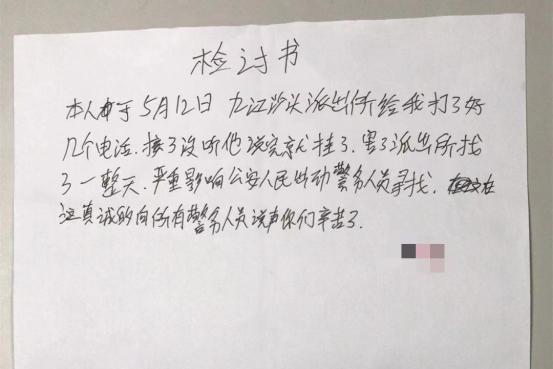 检讨书
本人由于5月12日 九江沙头派出所给我打了好
几个电话.接了没听他说完就挂了.害了派出所找
了一整天.严重影响公安人民出动警务人员寻找.在
这真诚的向所有警务人员说声你们辛苦了.